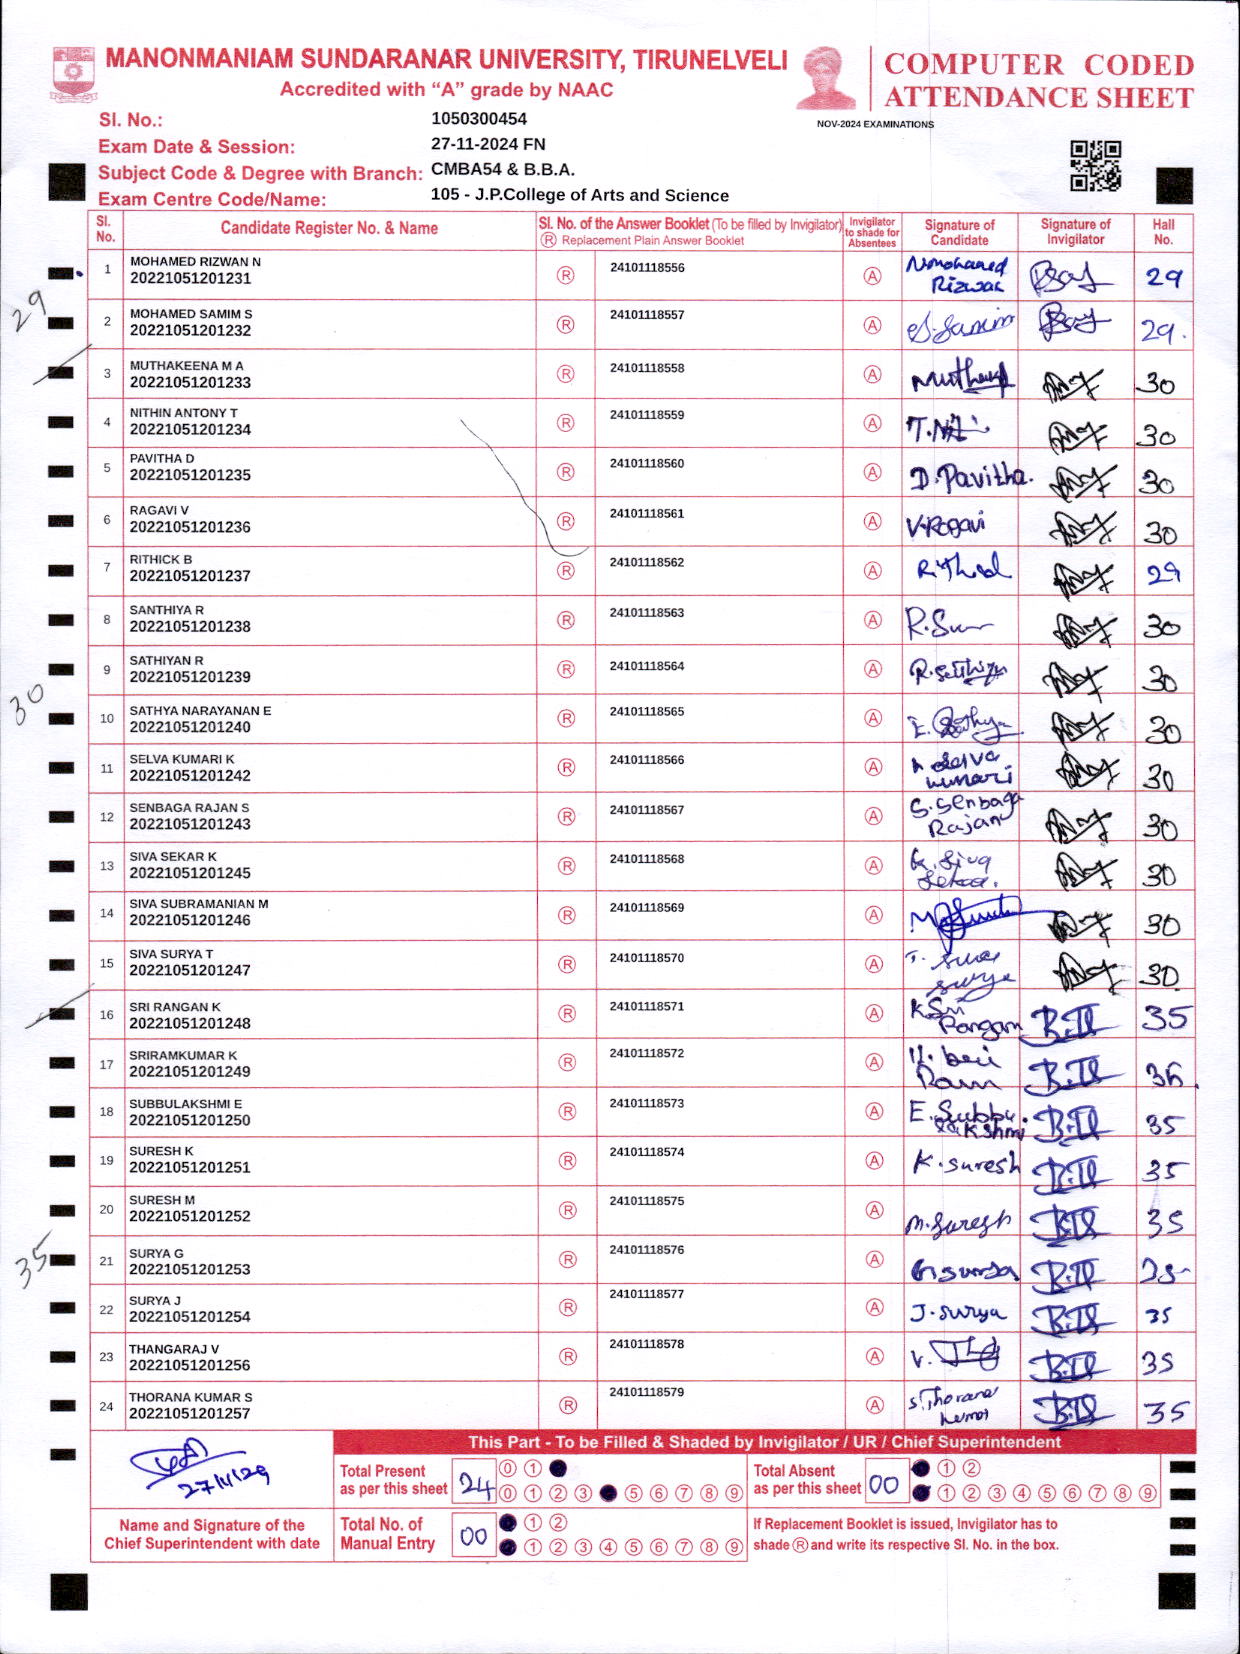 MANONMANIAM SUNDARANAR UNIVERSITY, TIRUNELVELI
Accredited with “A” grade by NAAC
COMPUTER CODED
ATTENDANCE SHEET
NOV-2024 EXAMINATIONS
Sl. No.: 1050300454
Exam Date & Session: 27-11-2024 FN
Subject Code & Degree with Branch: CMBA54 & B.B.A.
Exam Centre Code/Name: 105 - J.P.College of Arts and Science
Sl. No. Candidate Register No. & Name Sl. No. of the Answer Booklet (To be filled by Invigilator) Ⓡ Replacement Plain Answer Booklet Invigilator to shade for Absentees Signature of Candidate Signature of Invigilator Hall No.
29
1 MOHAMED RIZWAN N
20221051201231 Ⓡ 24101118556 Ⓐ N.mohamed Rizwan 29
2 MOHAMED SAMIM S
20221051201232 Ⓡ 24101118557 Ⓐ S.Samim 29.
3 MUTHAKEENA M A
20221051201233 Ⓡ 24101118558 Ⓐ 30
4 NITHIN ANTONY T
20221051201234 Ⓡ 24101118559 Ⓐ 30
5 PAVITHA D
20221051201235 Ⓡ 24101118560 Ⓐ D.Pavitha. 30
6 RAGAVI V
20221051201236 Ⓡ 24101118561 Ⓐ V.Ragavi 30
7 RITHICK B
20221051201237 Ⓡ 24101118562 Ⓐ 29
8 SANTHIYA R
20221051201238 Ⓡ 24101118563 Ⓐ 30
9 SATHIYAN R
20221051201239 Ⓡ 24101118564 Ⓐ 30
30
10 SATHYA NARAYANAN E
20221051201240 Ⓡ 24101118565 Ⓐ E. Sathya 30
11 SELVA KUMARI K
20221051201242 Ⓡ 24101118566 Ⓐ selva kumari 30
12 SENBAGA RAJAN S
20221051201243 Ⓡ 24101118567 Ⓐ S.Senbaga Rajan 30
13 SIVA SEKAR K
20221051201245 Ⓡ 24101118568 Ⓐ K.Siva Sekar. 30
14 SIVA SUBRAMANIAN M
20221051201246 Ⓡ 24101118569 Ⓐ 30
15 SIVA SURYA T
20221051201247 Ⓡ 24101118570 Ⓐ T. Siva surya 30
16 SRI RANGAN K
20221051201248 Ⓡ 24101118571 Ⓐ K Sri Rangan 35
17 SRIRAMKUMAR K
20221051201249 Ⓡ 24101118572 Ⓐ
18 SUBBULAKSHMI E
20221051201250 Ⓡ 24101118573 Ⓐ E.Subbu lakshmi 35
19 SURESH K
20221051201251 Ⓡ 24101118574 Ⓐ K.suresh 35
20 SURESH M
20221051201252 Ⓡ 24101118575 Ⓐ M.Suresh 35
35
21 SURYA G
20221051201253 Ⓡ 24101118576 Ⓐ G.surya 35
22 SURYA J
20221051201254 Ⓡ 24101118577 Ⓐ J.surya 35
23 THANGARAJ V
20221051201256 Ⓡ 24101118578 Ⓐ 35
24 THORANA KUMAR S
20221051201257 Ⓡ 24101118579 Ⓐ S.Thorana kumar 35
This Part - To be Filled & Shaded by Invigilator / UR / Chief Superintendent
Total Present as per this sheet 24 ⓪ ①
⓪ ① ② ③ ⑤ ⑥ ⑦ ⑧ ⑨
Total Absent as per this sheet 00 ① ②
① ② ③ ④ ⑤ ⑥ ⑦ ⑧ ⑨
Name and Signature of the Chief Superintendent with date
Total No. of Manual Entry 00 ① ②
① ② ③ ④ ⑤ ⑥ ⑦ ⑧ ⑨
If Replacement Booklet is issued, Invigilator has to
shade Ⓡ and write its respective Sl. No. in the box.